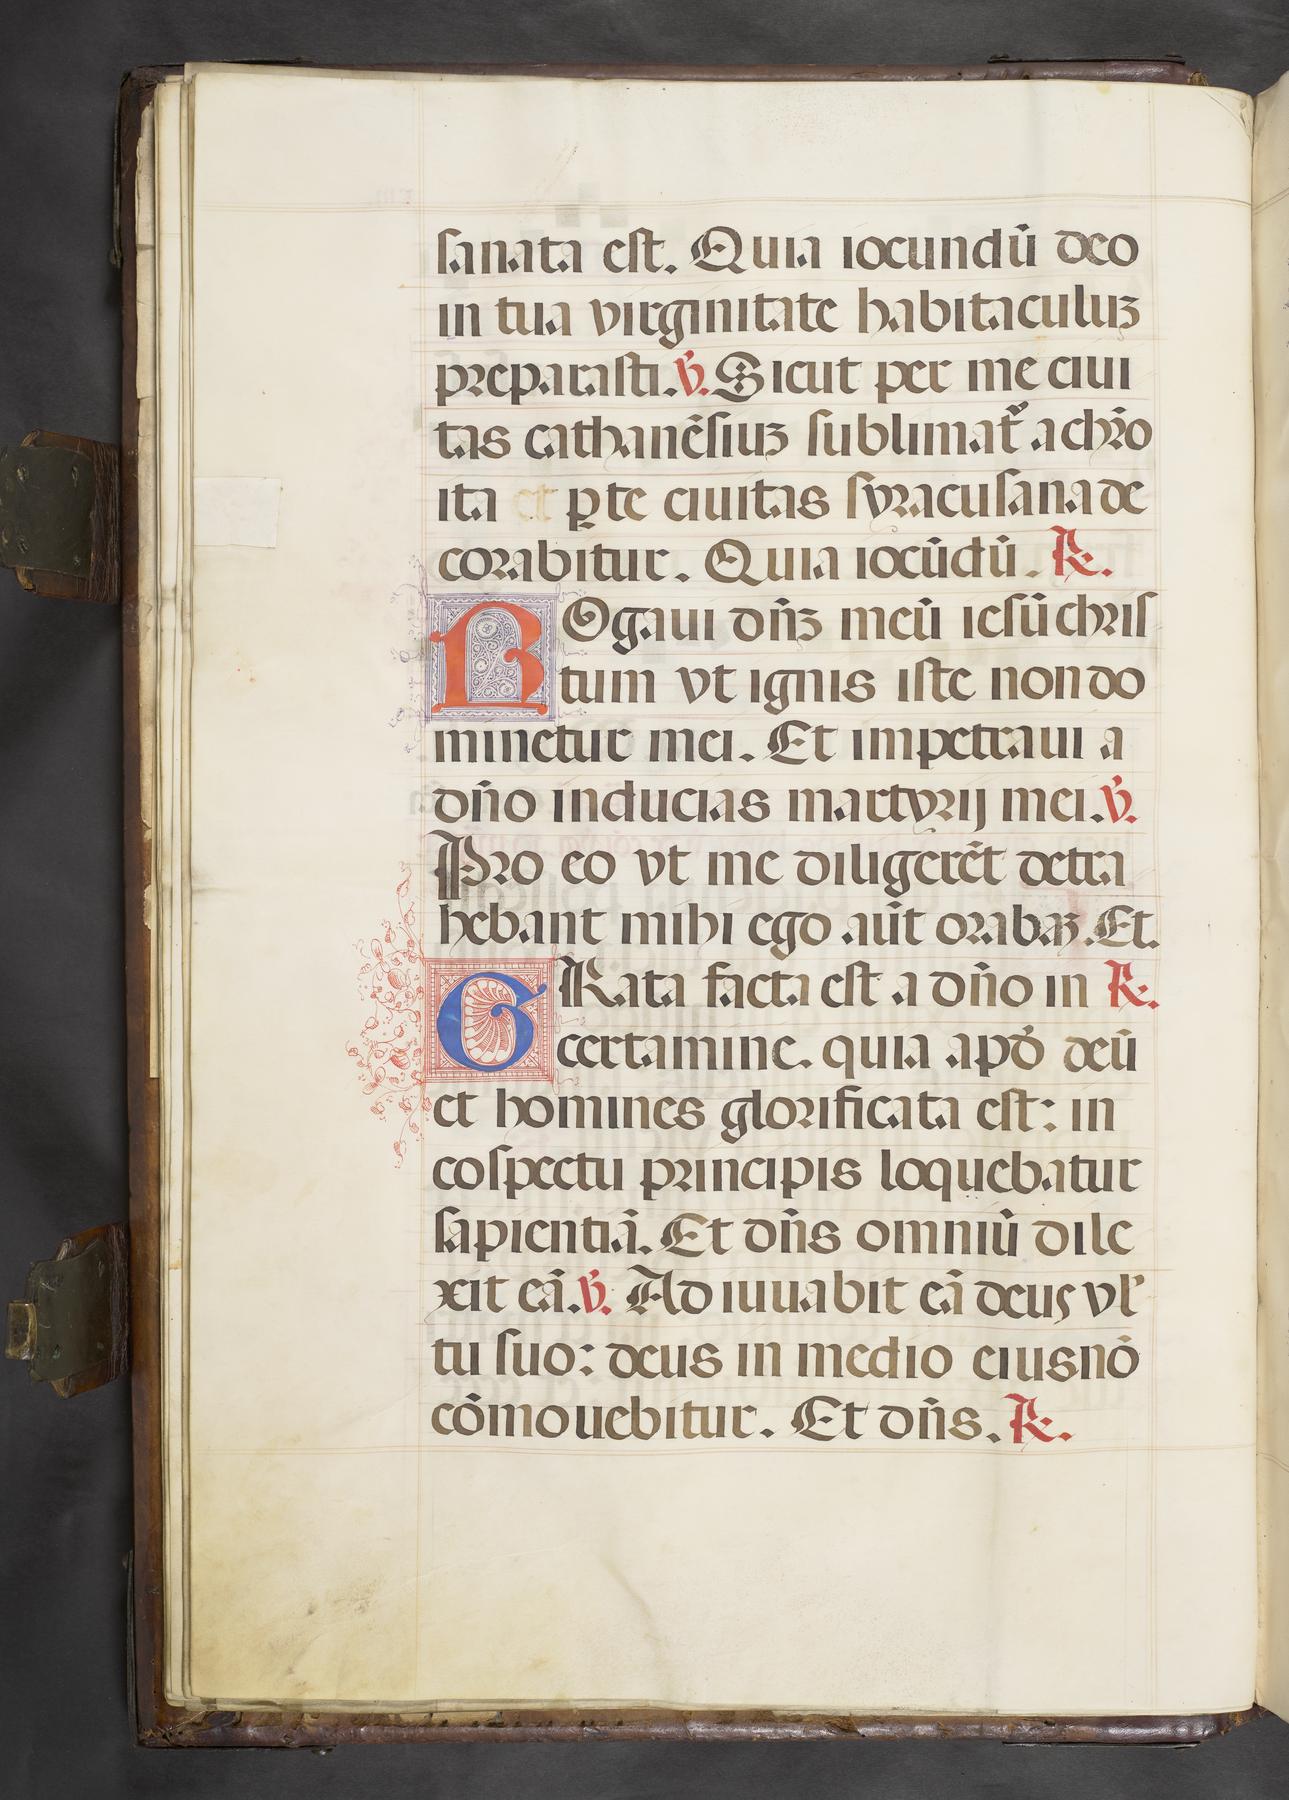 sanata est. Quia iocundū deo
in tua virginitate habitaculuȝ
preparasti. ℣. Sicut per me ciui
tas cathanēsiuȝ sublimat᷑ a chr̄o
ita et ꝑ te ciuitas syracusana de
corabitur. Quia iocūdū. ℟.
ROgaui dn̄ȝ meū iesū chris
tum vt ignis iste non do
minetur mei. Et impetraui a
dn̄o inducias martyrij mei. ℣.
Pro eo vt me diligerēt detra
hebant mihi ego aūt orabaȝ. Et.
GRata facta est a dn̄o in ℟.
certamine. quia apd̄ deū
et homines glorificata est: in
cospectu principis loquebatur
sapientiā. Et dn̄s omniū dile
xit eā. ℣. Ad iuuabit eā deus vl
tu suo: deus in medio eius nō
cōmouebitur. Et dn̄s. ℟.